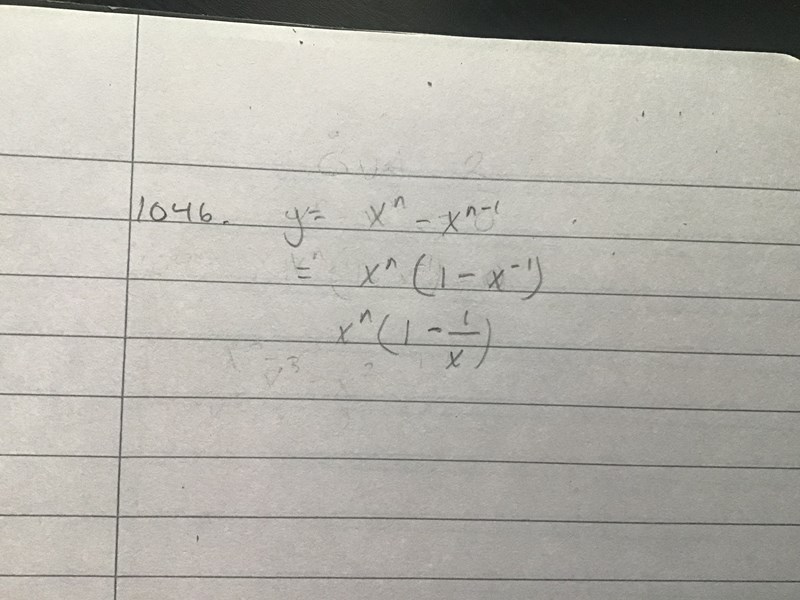 1046. y= xⁿ - xⁿ⁻¹
= xⁿ (1 - x⁻¹)
xⁿ (1 - 1/x)